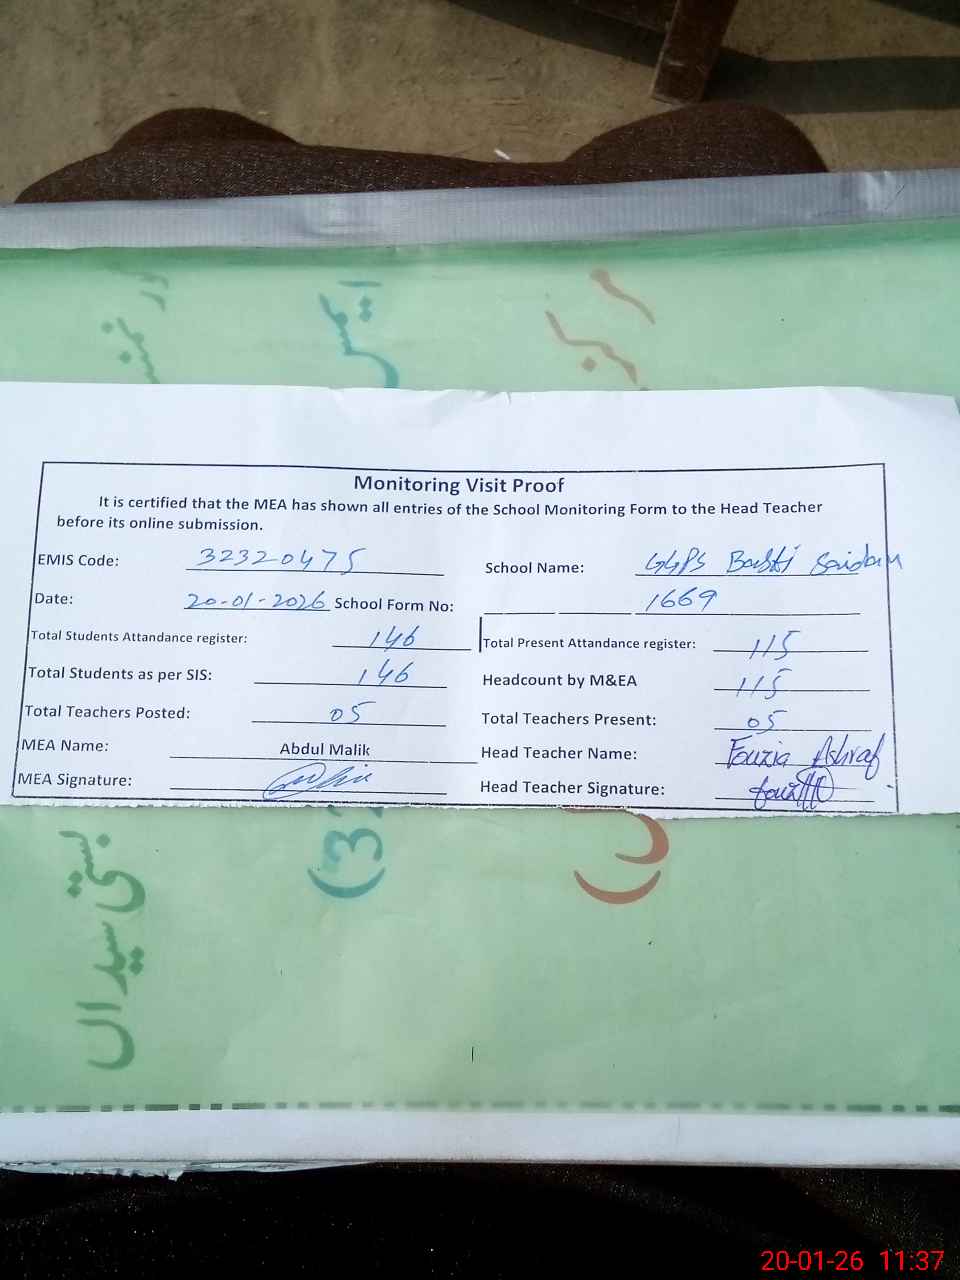 ایکس
Monitoring Visit Proof
It is certified that the MEA has shown all entries of the School Monitoring Form to the Head Teacher
before its online submission.
EMIS Code: 32320475 School Name: GGPS Basti Saidan
Date: 20-01-2026 School Form No: 1669
Total Students Attandance register: 146 Total Present Attandance register: 115
Total Students as per SIS: 146 Headcount by M&EA 115
Total Teachers Posted: 05 Total Teachers Present: 05
MEA Name: Abdul Malik Head Teacher Name: Fouzia Ashraf
MEA Signature: Head Teacher Signature:
بستی سیداں
20-01-26 11:37